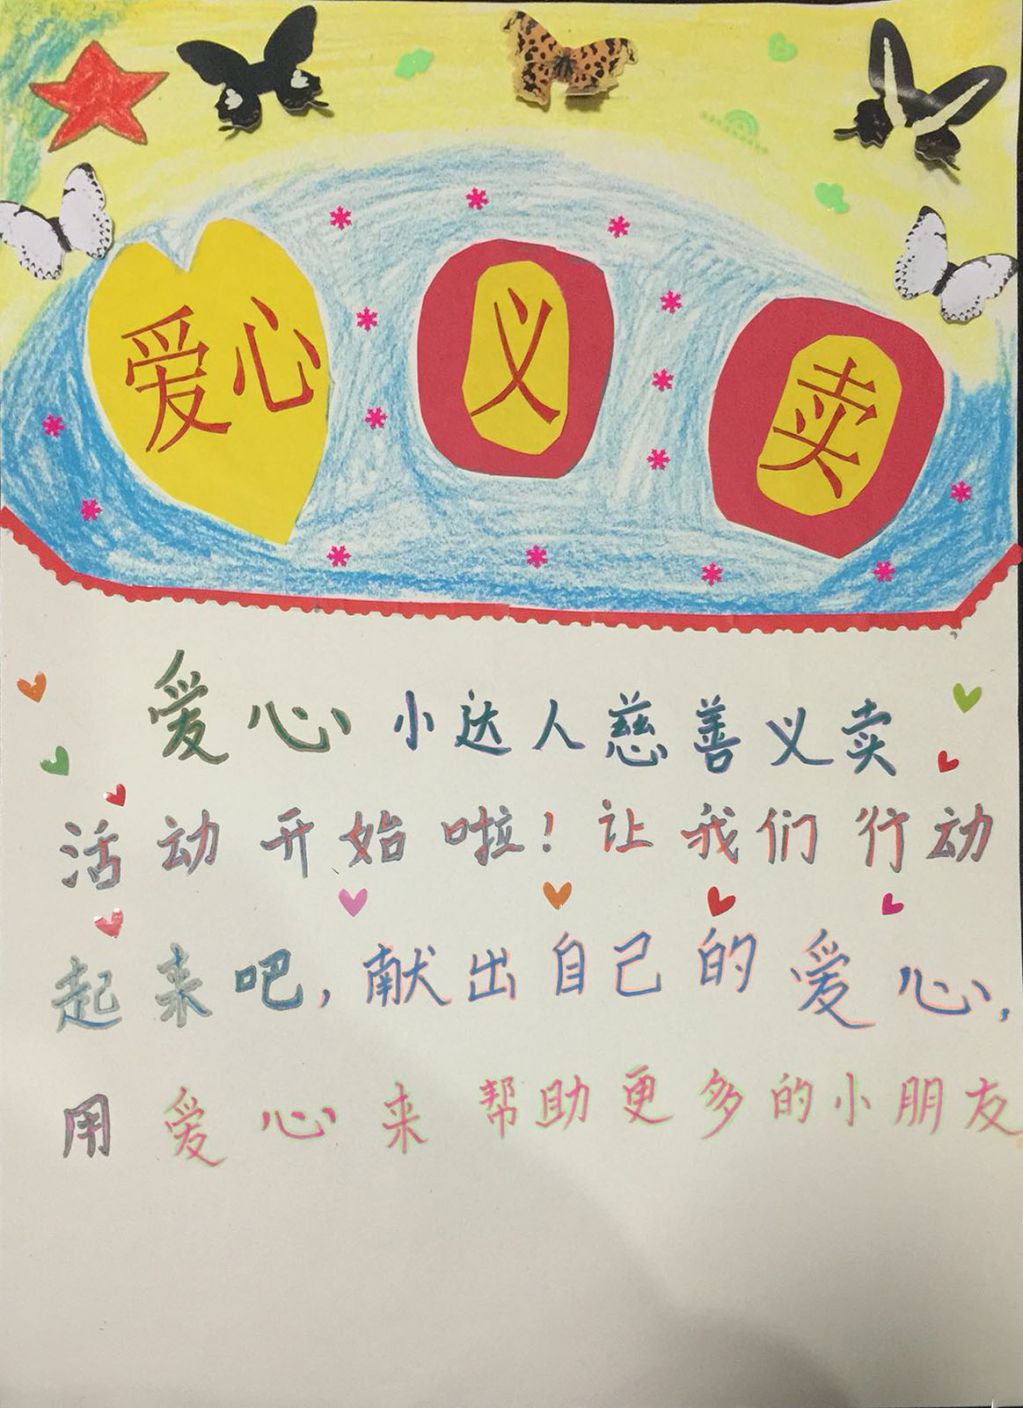 爱心义卖
爱心小达人慈善义卖
活动开始啦！让我们行动
起来吧，献出自己的爱心，
用爱心来帮助更多的小朋友